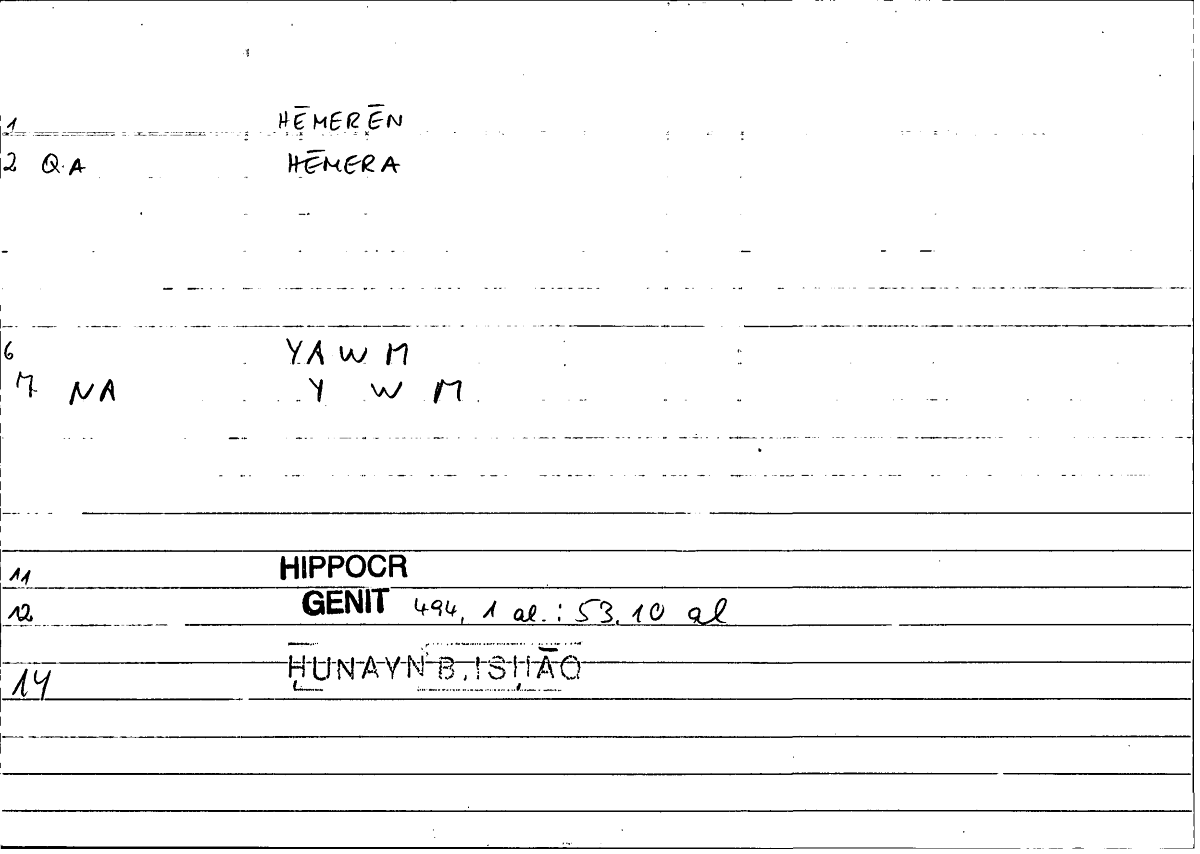 1 HĒMERĒN
2 Q.A HĒMERA
6 YAWM
7 NA Y W M
11 HIPPOCR
12 GENIT 494, 1 al. : 53.10 al
14 ḤUNAYN B. ISḤĀQ